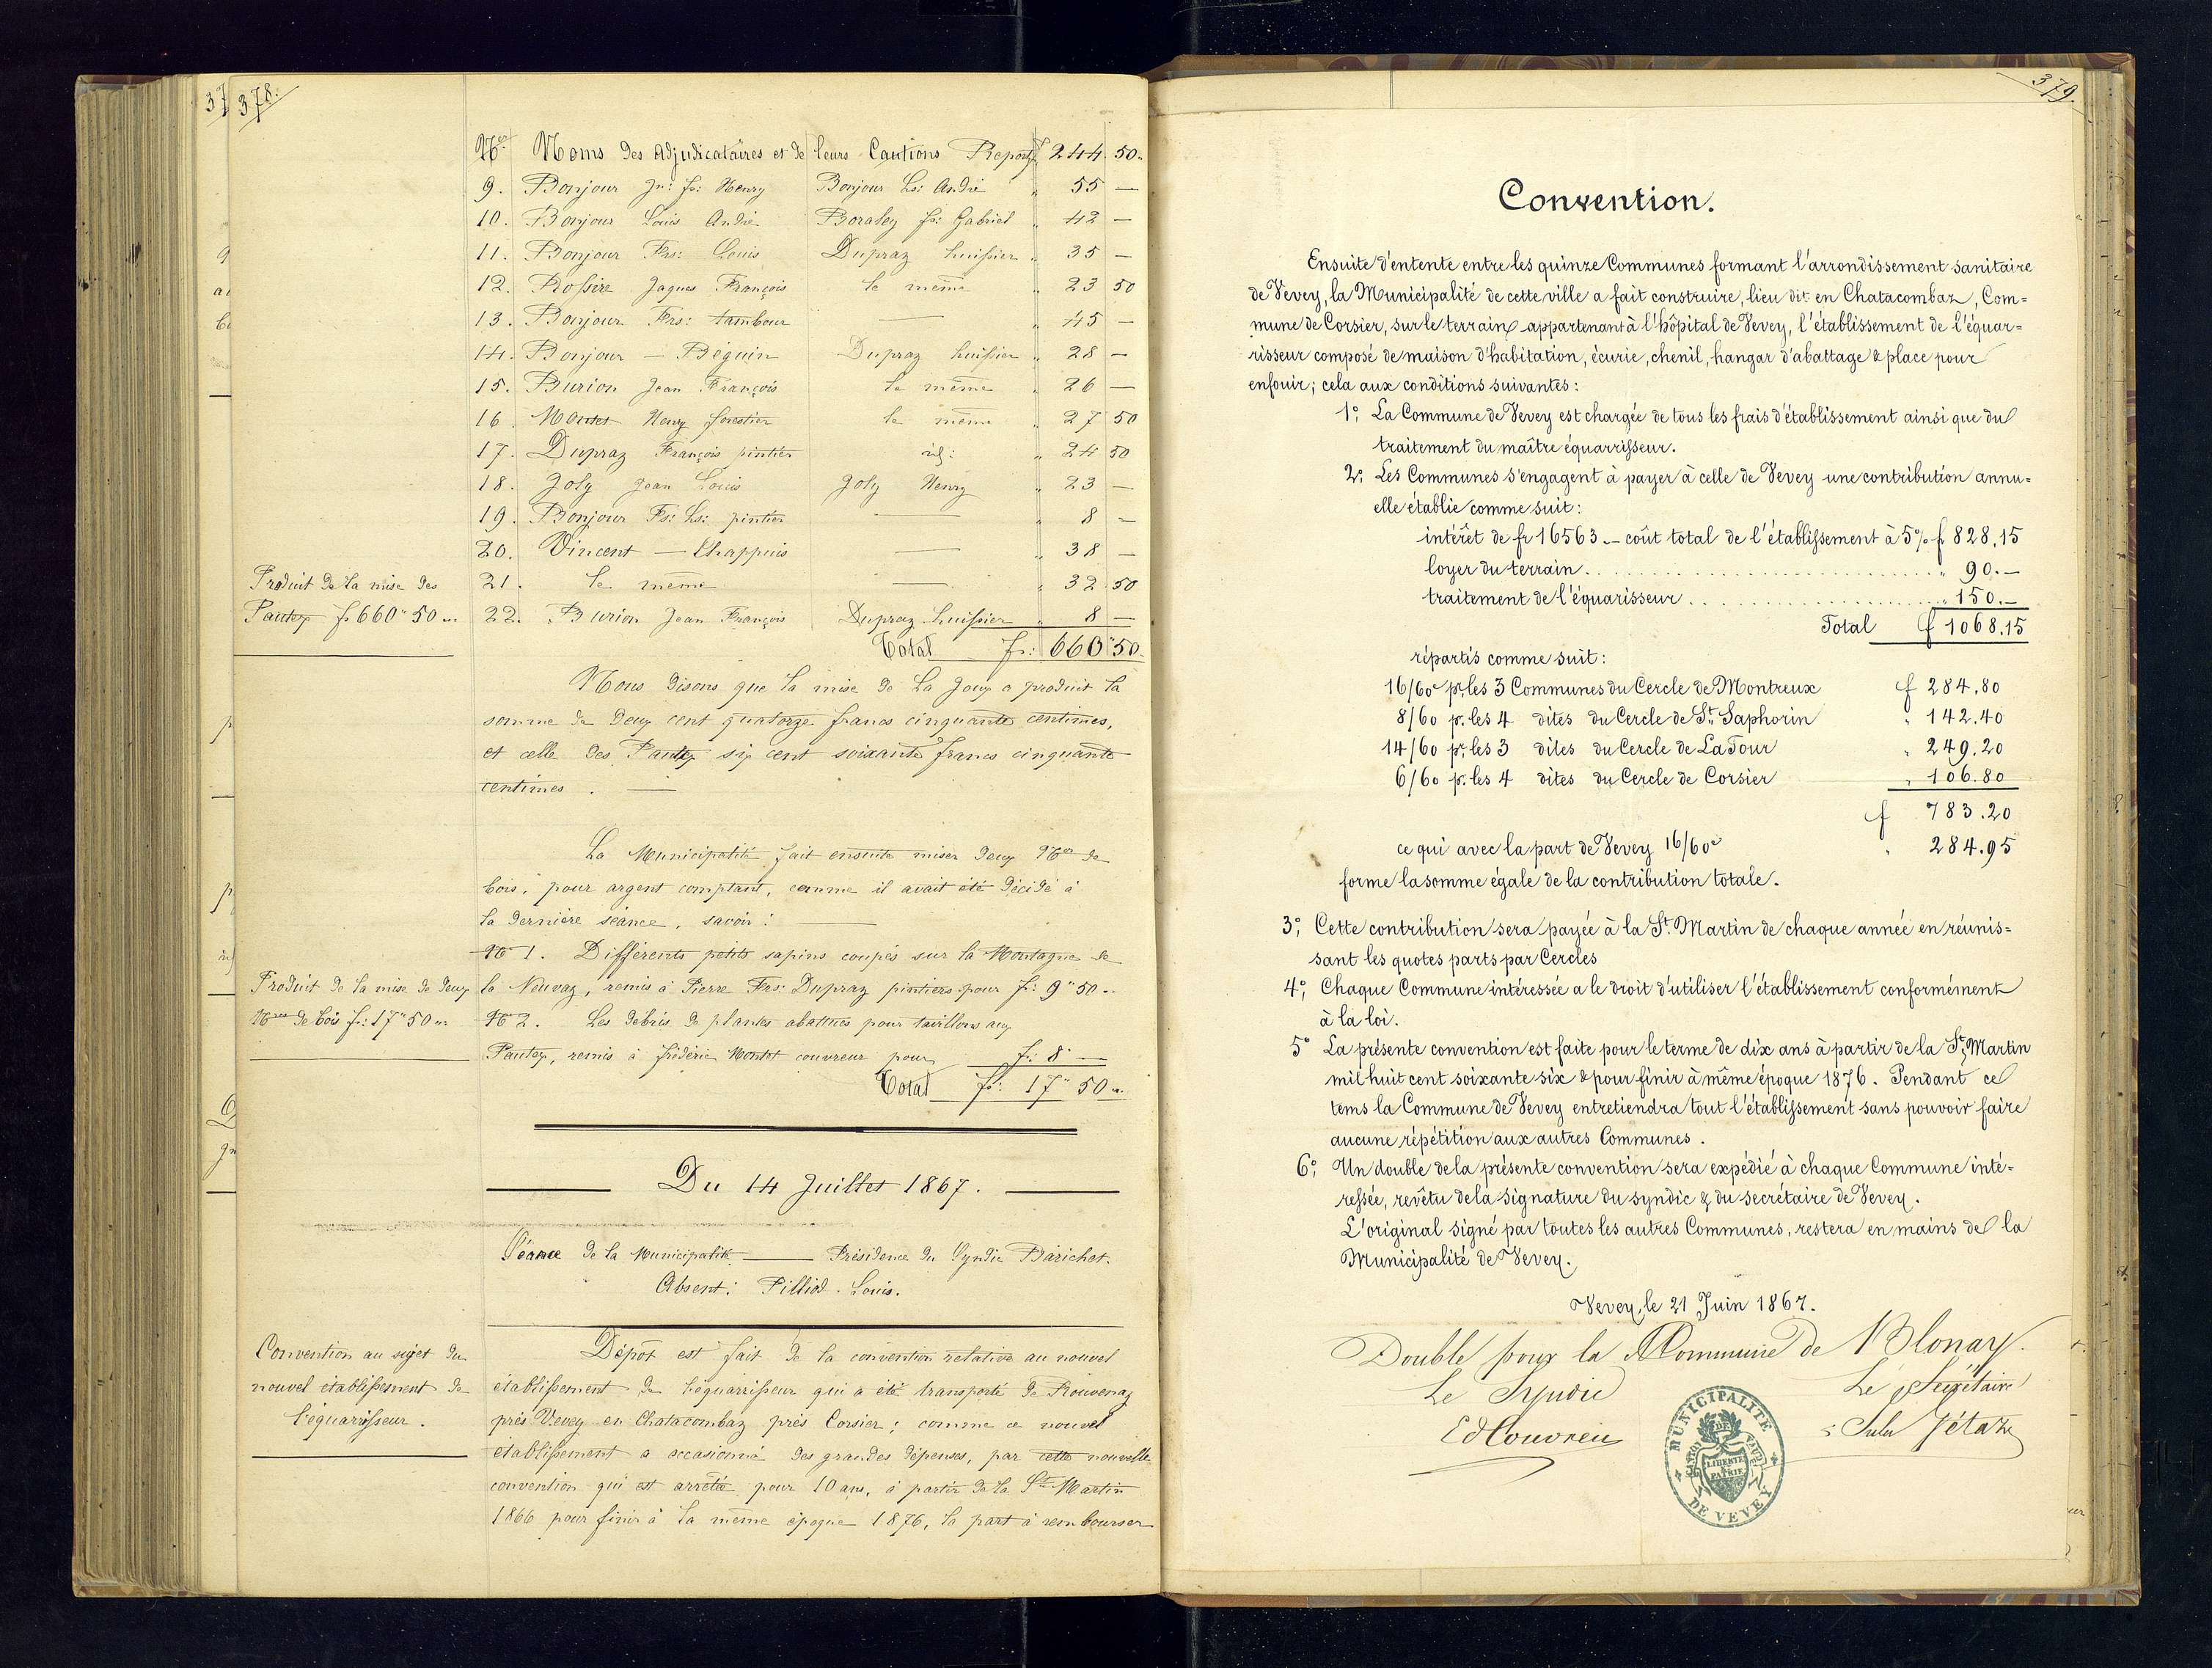 378.
Nos Noms des Adjudicataires et de leurs Cautions Report f 244 50
9. Bonjour Jn: fs: Henry Bonjour Ls: André " 55 —
10. Bonjour Louis André Boraley fs: Gabriel " 42 —
11. Bonjour Frs: Louis Dupraz huissier " 35 —
12. Rossire Jaques François le même " 23 50
13. Bonjour Frs: tambour — " 45 —
14. Bonjour — Béguin Dupraz huissier " 28 —
15. Burion Jean François le même " 26 —
16 Montet Henry forestier le même " 27 50
17. Dupraz François pintier id: " 24 50
18. Joly Jean Louis Joly Henry " 23 —
19. Bonjour Fs: Ls: pintier — " 8 —
20. Vincent — Chappuis — " 38 —
21. le même — " 32 50
22. Burion Jean François Dupraz huissier " 8 —
Total fr: 660 " 50
Produit de la mise des
Pautex f 660 " 50
Nous disons que la mise de La Joux a produit la
somme de deux cent quatorze francs cinquante centimes,
et celle des Pautex six cent soixante francs cinquante
centimes. —
La Municipalité fait ensuite miser deux Nos de
bois, pour argent comptant, comme il avait été décidé à
la dernière séance, savoir: —
No 1. Différents petits sapins coupés sur la Montagne de
la Neuvaz, remis à Pierre Frs: Dupraz pintier pour fr: 9 " 50
No 2. Les débris de plantes abattues pour tavillons aux
Pautex, remis à frédéric Montet couvreur pour fr: 8 " —
Total fr: 17 " 50
Produit de la mise de deux
Nos de bois fr: 17 " 50
Du 14 Juillet 1867.
Séance de la Municipalité — Présidence du Syndic Bärichet.
Absent: Pilliod Louis.
Convention au sujet du
nouvel établissement de
l'équarisseur.
Dépôt est fait de la convention relative au nouvel
établissement de l'équarrisseur qui a été transporté de Rouvenaz
près Vevey en Chatacombaz près Corsier; comme ce nouvel
établissement a occasionné des grandes dépenses, par cette nouvelle
convention qui est arrêtée pour 10 ans, à partir de la St Martin
1866 pour finir à la même époque 1876, la part à rembourser
379.
Convention.
Ensuite d'entente entre les quinze Communes formant l'arrondissement sanitaire
de Vevey, la Municipalité de cette ville a fait construire, lieu dit en Chatacombaz, Com=
mune de Corsier, sur le terrain appartenant à l'hôpital de Vevey, l'établissement de l'équar=
risseur composé de maison d'habitation, écurie, chenil, hangar d'abattage & place pour
enfouir; cela aux conditions suivantes:
1o, La Commune de Vevey est chargée de tous les frais d'établissement ainsi que du
traitement du maître équarrisseur.
2o, Les Communes s'engagent à payer à celle de Vevey une contribution annu=
elle établie comme suit:
intérêt de fr 16563.— coût total de l'établissement à 5% f 828.15
loyer du terrain . . . . . . . . . . " 90.—
traitement de l'équarisseur . . . . . . . . . . " 150.—
Total f 1068.15
répartis comme suit:
16/60e pr. les 3 Communes du Cercle de Montreux f 284.80
8/60 pr. les 4 dites du Cercle de St. Saphorin " 142.40
14/60 pr. les 3 dites du Cercle de La Tour " 249.20
6/60 pr. les 4 dites du Cercle de Corsier " 106.80
f 783.20
ce qui avec la part de Vevey 16/60e " 284.95
forme la somme égale de la contribution totale.
3o, Cette contribution sera payée à la St. Martin de chaque année en réunis=
sant les quotes parts par Cercles
4o, Chaque Commune intéressée a le droit d'utiliser l'établissement conformément
à la loi.
5o La présente convention est faite pour le terme de dix ans à partir de la St. Martin
mil huit cent soixante six & pour finir à même époque 1876. Pendant ce
tems la Commune de Vevey entretiendra tout l'établissement sans pouvoir faire
aucune répétition aux autres Communes.
6o, Un double de la présente convention sera expédié à chaque Commune inté=
ressée, revêtu de la signature du syndic & du secrétaire de Vevey.
L'original signé par toutes les autres Communes, restera en mains de la
Municipalité de Vevey.
Vevey, le 21 Juin 1867.
Double pour la Commune de Blonay.
Le Syndic Le Secrétaire
Ed Couvreu Jules Pétaz
MUNICIPALITE DE VEVEY
CANTON DE VAUD
LIBERTE ET PATRIE